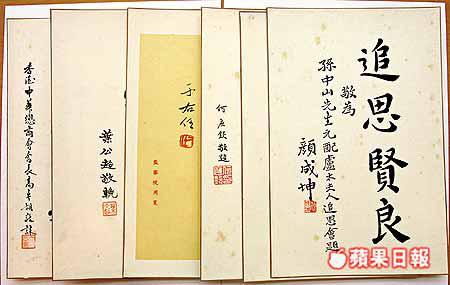 追思賢良
敬為
孫中山先生元配盧太夫人追思會題
顏成坤
何應欽敬題
于右任
監察院用箋
葉公超敬輓
香港中華總商會會長高卓雄敬
蘋果日報